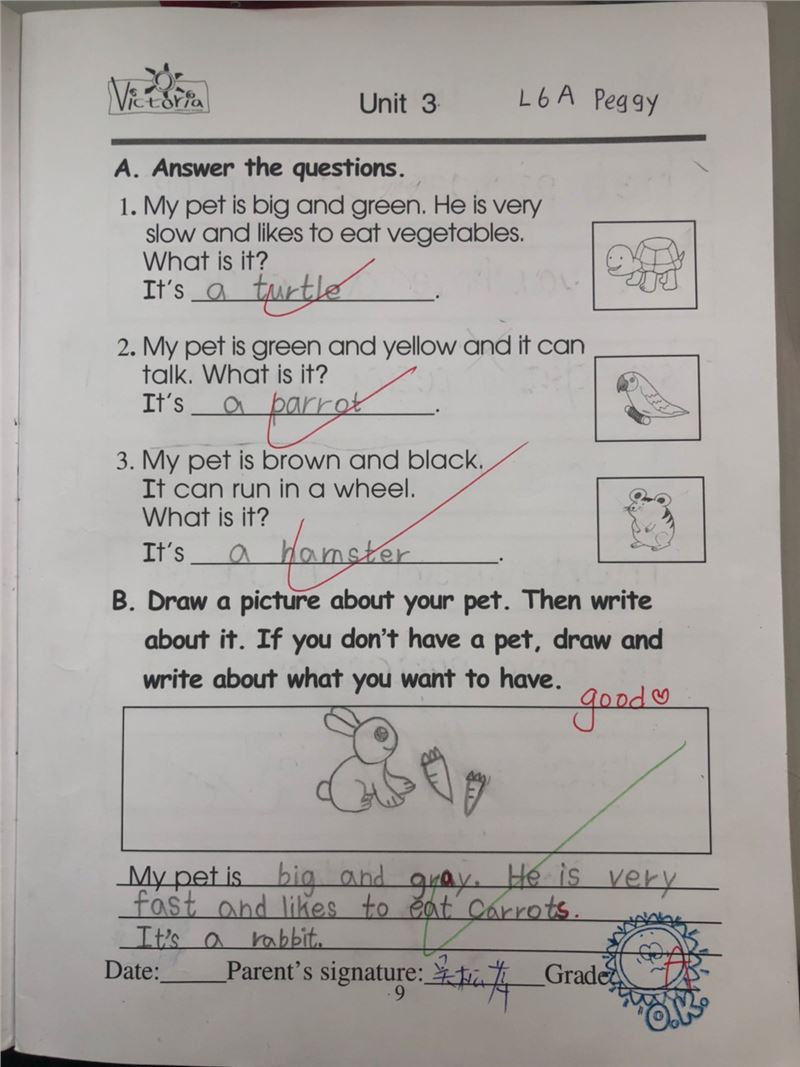 Victoria
Unit 3
L6A Peggy
A. Answer the questions.
1. My pet is big and green. He is very
slow and likes to eat vegetables.
What is it?
It's a turtle.
2. My pet is green and yellow and it can
talk. What is it?
It's a parrot.
3. My pet is brown and black.
It can run in a wheel.
What is it?
It's a hamster.
B. Draw a picture about your pet. Then write
about it. If you don't have a pet, draw and
write about what you want to have.
good
My pet is big and gray. He is very
fast and likes to eat carrots.
It's a rabbit.
Date:_____Parent's signature: Grade A
O.K.
9